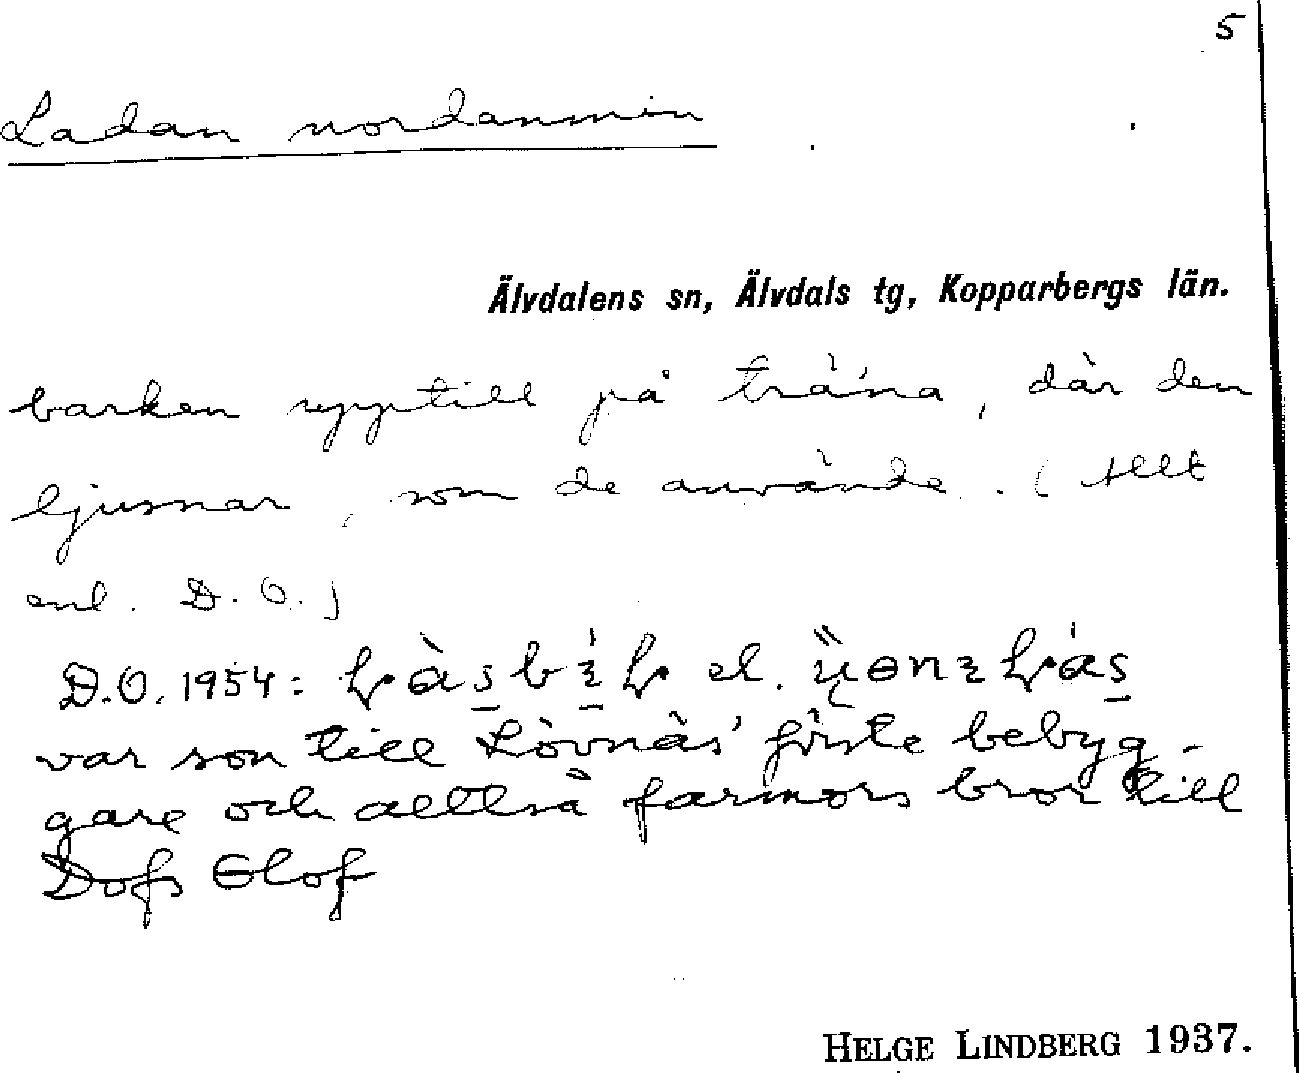 5
Ladan nordanmin
Älvdalens sn, Älvdals tg, Kopparbergs län.
barken upptill på träna, där den
ljusnar, som de använde. (Allt
enl. D. O.)
D.O. 1954: el.
var son till Lövnäs' förste bebyg-
gare och alltså farmors bror till
Dofs Olof
HELGE LINDBERG 1937.